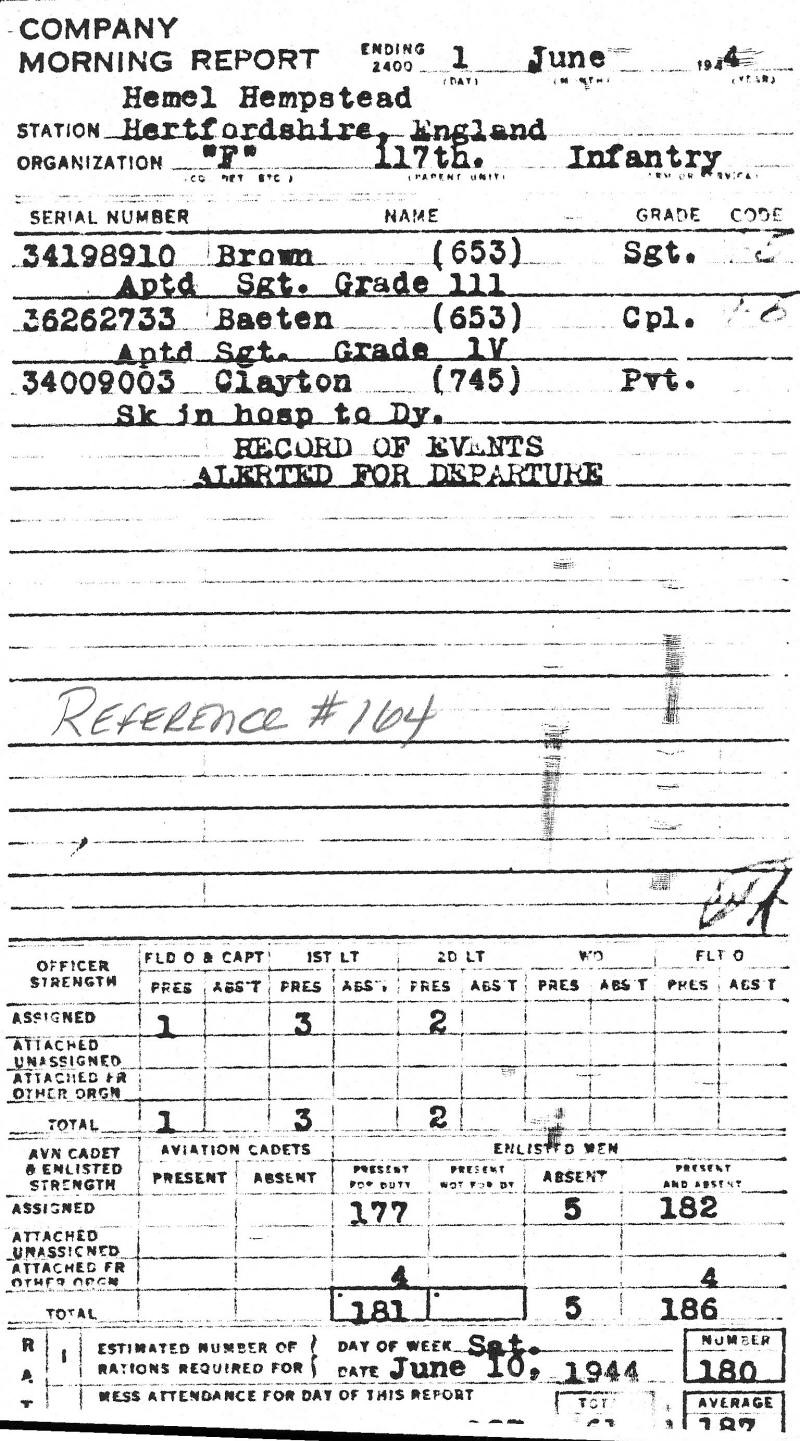 COMPANY
MORNING REPORT ENDING 2400 1 June 1944
(DAY) (MONTH) (YEAR)
Hemel Hempstead
STATION Hertfordshire, England
ORGANIZATION "F" 117th. Infantry
(CO DET ETC) (PARENT UNIT) (ARM OR SERVICE)
SERIAL NUMBER NAME GRADE CODE
34198910 Brown (653) Sgt.
Aptd Sgt. Grade 111
36262733 Baeten (653) Cpl.
Aptd Sgt. Grade 1V
34009003 Clayton (745) Pvt.
Sk in hosp to Dy.
RECORD OF EVENTS
ALERTED FOR DEPARTURE
REFERENCE #164
OFFICER STRENGTH FLD O & CAPT 1ST LT 2D LT WO FLT O
PRES ABS'T PRES ABS'T PRES ABS'T PRES ABS'T PRES ABS'T
ASSIGNED 1 3 2
ATTACHED UNASSIGNED
ATTACHED FR OTHER ORGN
TOTAL 1 3 2
AVN CADET & ENLISTED STRENGTH AVIATION CADETS ENLISTED MEN
PRESENT ABSENT PRESENT FOR DUTY PRESENT NOT FOR DY ABSENT PRESENT AND ABSENT
ASSIGNED 177 5 182
ATTACHED UNASSIGNED
ATTACHED FR OTHER ORGN 4 4
TOTAL 181 5 186
RAT 1 ESTIMATED NUMBER OF DAY OF WEEK Sat. NUMBER
RATIONS REQUIRED FOR DATE June 10, 1944 180
MESS ATTENDANCE FOR DAY OF THIS REPORT TOT AVERAGE
187